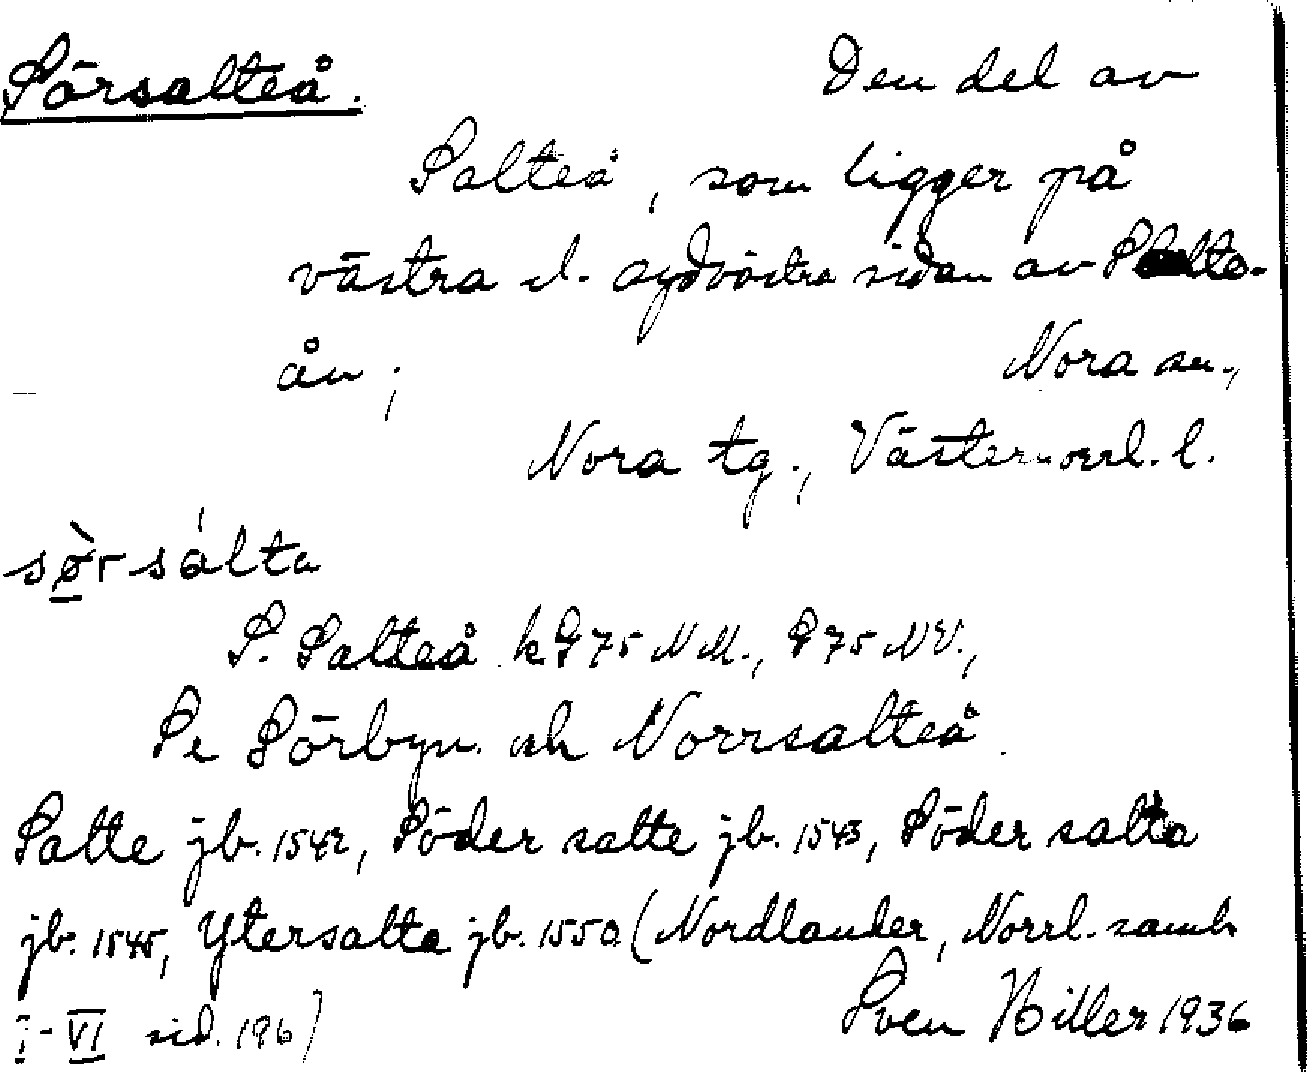 Sörsalteå. Den del av
Salteå, som ligger på
västra el. sydvästra sidan av Salte-
ån; Nora sn.,
Nora tg., Västernorrl. l.
sø̀rsálta
S. Salteå k 975 NM., 975 NV.,
Se Sörbyn och Norrsalteå.
Salte jb. 1542, Söder salte jb. 1543, Söder salta
jb. 1545, Ytersalta jb. 1550 (Nordlander, Norrl. saml.
I-VI sid. 196)
Sven Hiller 1936